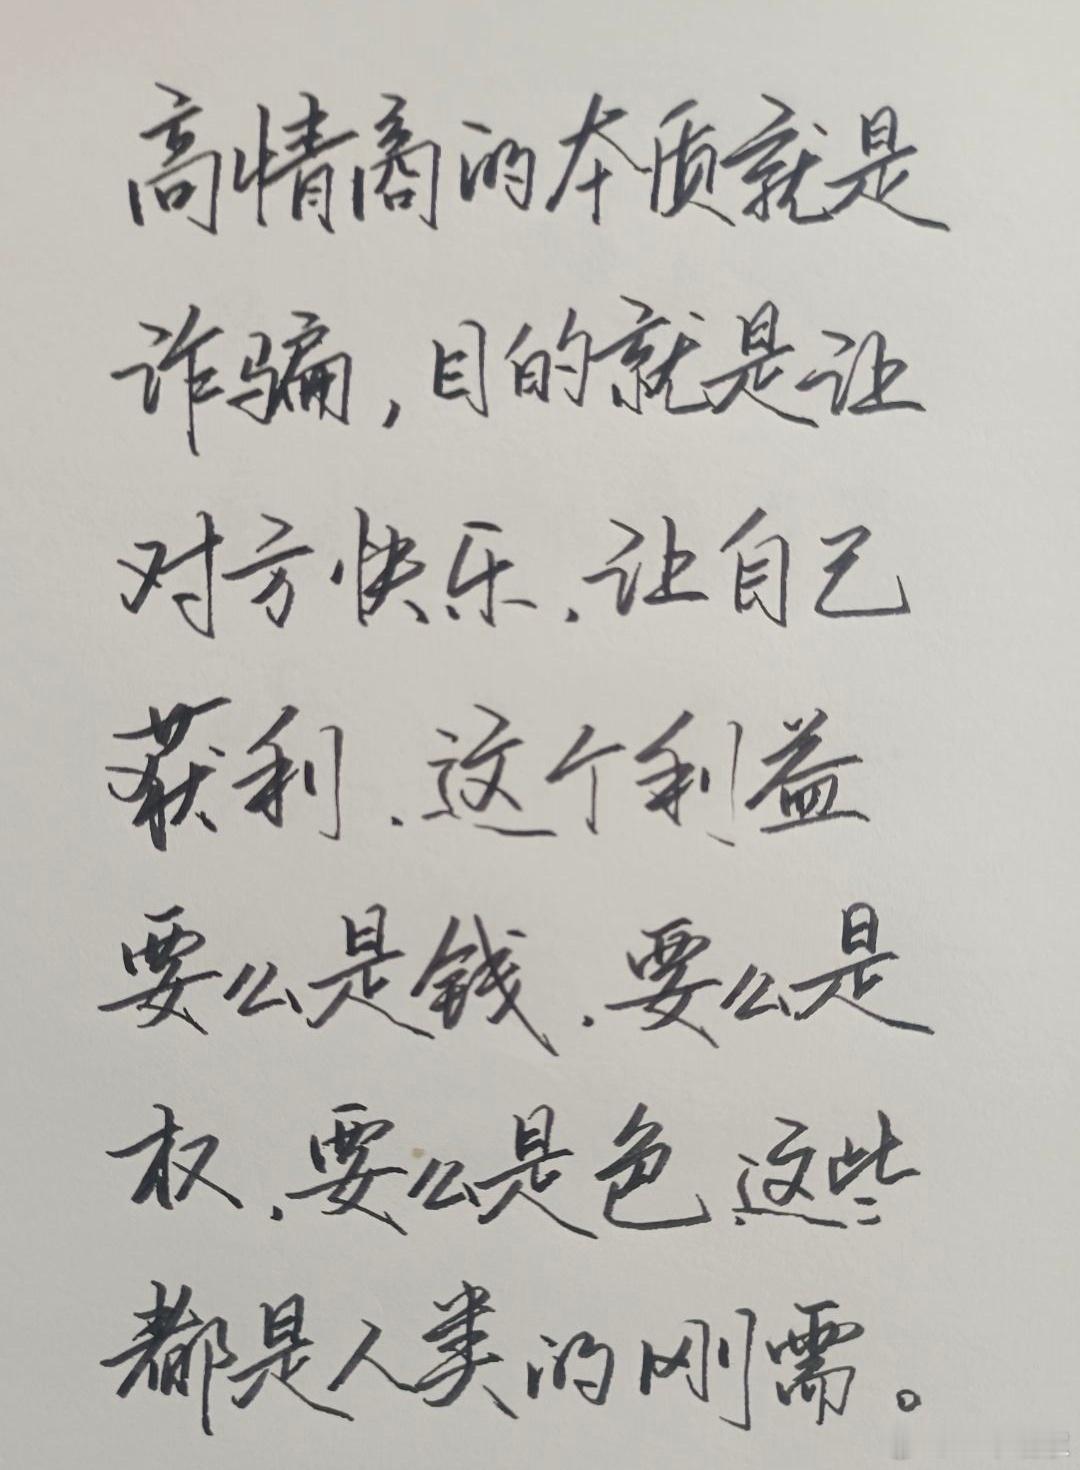 高情商的本质就是
诈骗,目的就是让
对方快乐.让自己
获利.这个利益
要么是钱.要么是
权.要么是色.这些
都是人类的刚需。